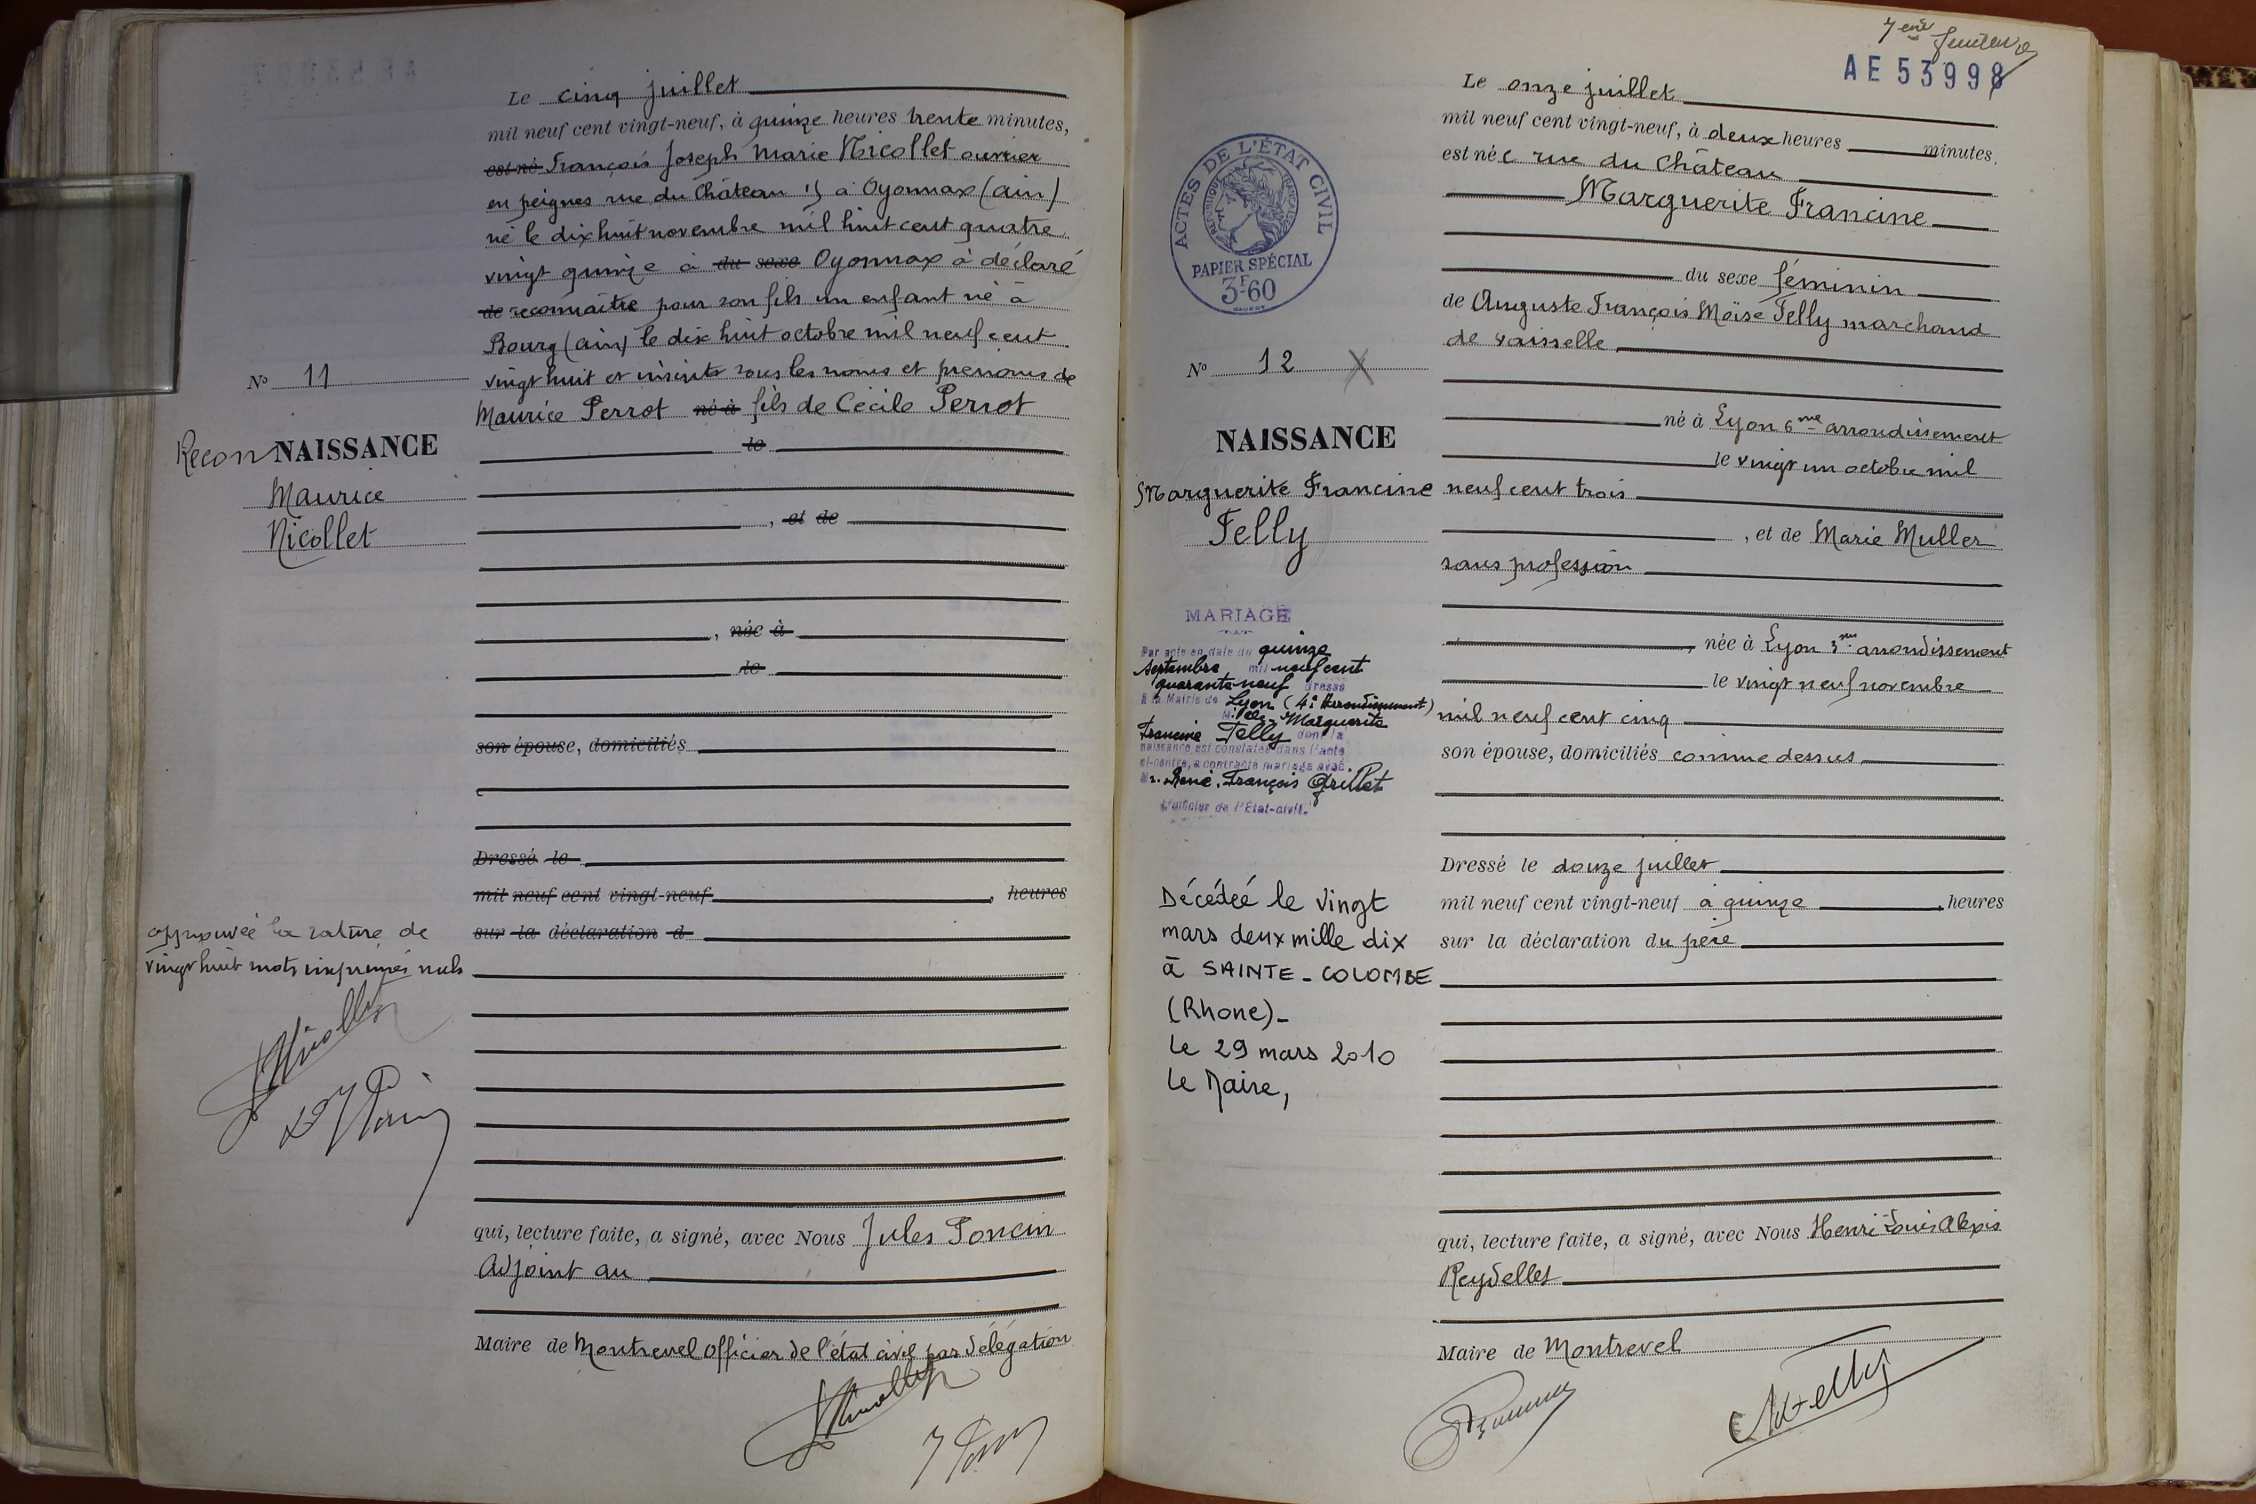 Le cinq juillet
mil neuf cent vingt-neuf, à quinze heures trente minutes,
est né François Joseph Marie Nicollet ouvrier
en peignes rue du Château 15 à Oyonnax (ain)
né le dix huit novembre mil huit cent quatre
vingt quinze à du sexe Oyonnax à déclaré
de reconnaître pour son fils un enfant né à
Bourg (ain) le dix huit octobre mil neuf cent
vingt huit et inscrit sous les noms et prénoms de
Maurice Perrot né à fils de Cécile Perrot
le
, et de
, née à
le
son épouse, domiciliés
Dressé le
mil neuf cent vingt-neuf, heures
sur la déclaration d
qui, lecture faite, a signé, avec Nous Jules Poncin
Adjoint au
Maire de Montrevel officier de l'état civil par délégation
No 11
Recon NAISSANCE
Maurice
Nicollet
approuvée la rature de
vingt huit mots imprimés nuls
7eme
AE 53998
ACTES DE L'ÉTAT CIVIL
RÉPUBLIQUE FRANÇAISE
PAPIER SPÉCIAL
3F60
No 12 X
NAISSANCE
Marguerite Francine
Felly
MARIAGE
Par acte en date du quinze
septembre mil neuf cent
quarante neuf dressé
à la Mairie de Lyon (4e Arrondissement)
Melle Marguerite
Francine Felly dont la
naissance est constatée dans l'acte
ci-contre, a contracté mariage avec
Mr. René. François Grillet
L'officier de l'État-civil.
Décédée le vingt
mars deux mille dix
à SAINTE-COLOMBE
(Rhone)_
Le 29 mars 2010
Le Maire,
Le onze juillet
mil neuf cent vingt-neuf, à deux heures minutes.
est née rue du Château
Marguerite Francine
du sexe féminin
de Auguste François Moïse Felly marchand
de vaisselle
né à Lyon 6me arrondissement
le vingt un octobre mil
neuf cent trois
, et de Marie Muller
sans profession
, née à Lyon 3me arrondissement
le vingt neuf novembre
mil neuf cent cinq
son épouse, domiciliés comme dessus
Dressé le douze juillet
mil neuf cent vingt-neuf à quinze, heures
sur la déclaration du père
qui, lecture faite, a signé, avec Nous Henri Louis Alexis
Reydellet
Maire de Montrevel